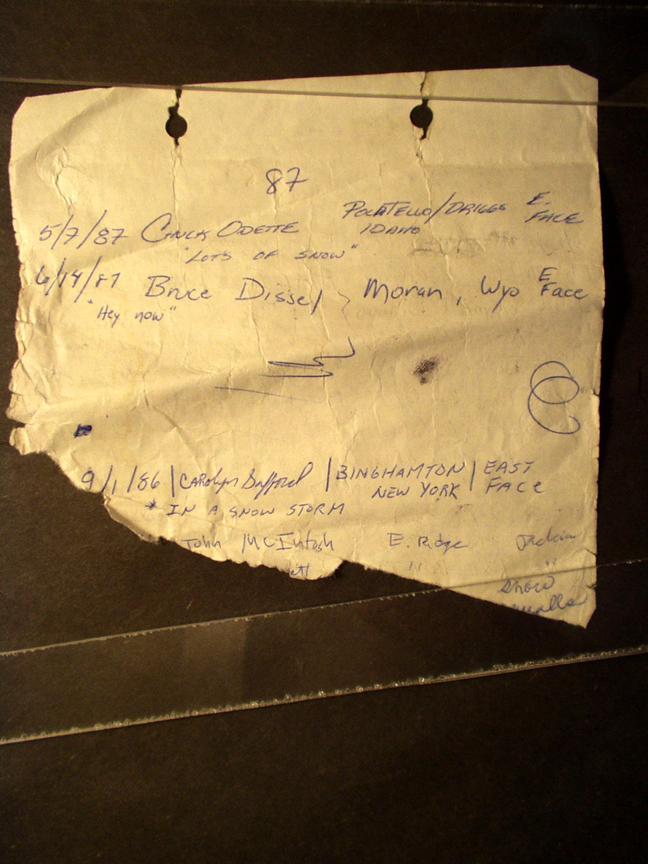 87
5/7/87 Chuck Odette POCATELLO/DRIGGS IDAHO E. FACE
"LOTS OF SNOW"
6/14/87 Bruce Dissel Moran, Wyo E Face
"Hey now"
9/1/86 | CAROLYN | BINGHAMTON NEW YORK | EAST FACE
* IN A SNOW STORM
John McIntosh E. Ridge Jackson
" "
Snow